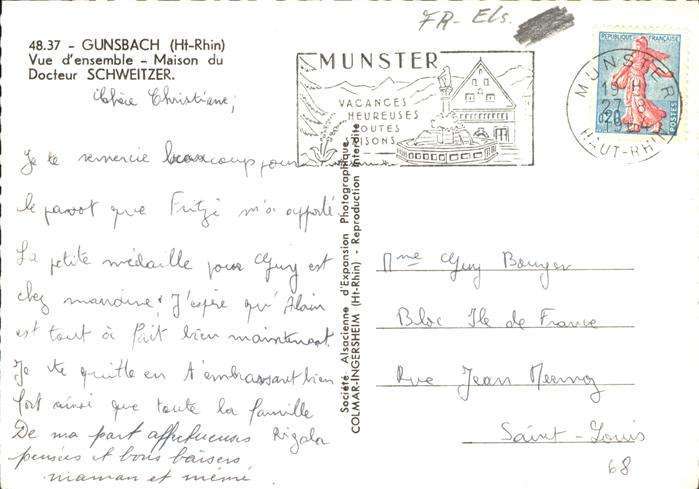 FR-Els.
48.37 - GUNSBACH (Ht-Rhin)
Vue d'ensemble - Maison du
Docteur SCHWEITZER.
MUNSTER
VACANCES
HEUREUSES
TOUTES
SAISONS
REPUBLIQUE FRANÇAISE
POSTES
MUNSTER
19 H
27
HAUT-RHIN
Chère Christiane,
Je te remercie beaucoup pour
le pavot que Fritzi m'a apporté
La petite médaille pour Guy est
chez mandine. J'espère qu'Alain
est tout à fait bien maintenant.
Je te quitte en t'embrassant bien
fort ainsi que toute la famille
De ma part affectueuses
pensées et bons baisers
maman et mémé
Société Alsacienne d'Expansion Photographique
COLMAR-INGERSHEIM (Ht-Rhin) - Reproduction interdite
Mme Guy
Bloc Ile de France
Rue Jean Mermoz
Saint-Louis
68